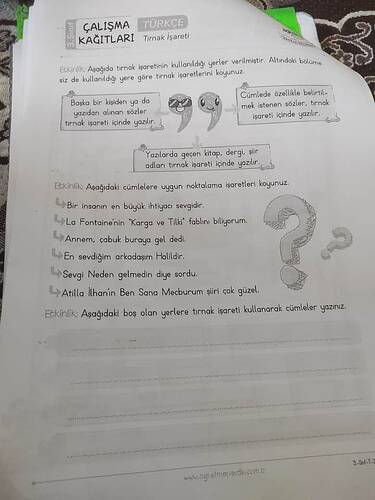 3.Sınıf
ÇALIŞMA
KAĞITLARI
TÜRKÇE
Tırnak İşareti
Etkinlik: Aşağıda tırnak işaretinin kullanıldığı yerler verilmiştir. Altındaki bölüme
siz de kullanıldığı yere göre tırnak işaretlerini koyunuz.
Başka bir kişiden ya da
yazıdan alınan sözler
tırnak işareti içinde yazılır.
Cümlede özellikle belirtil-
mek istenen sözler, tırnak
işareti içinde yazılır.
Yazılarda geçen kitap, dergi, şiir
adları tırnak işareti içinde yazılır.
Etkinlik: Aşağıdaki cümlelere uygun noktalama işaretleri koyunuz.
Bir insanın en büyük ihtiyacı sevgidir.
La Fontaine'nin "Karga ve Tilki" fablını biliyorum.
Annem, çabuk buraya gel dedi.
En sevdiğim arkadaşım Halildir.
Sevgi Neden gelmedin diye sordu.
Atilla İlhan'ın Ben Sana Mecburum şiiri çok güzel.
Etkinlik: Aşağıdaki boş olan yerlere tırnak işareti kullanarak cümleler yazınız.